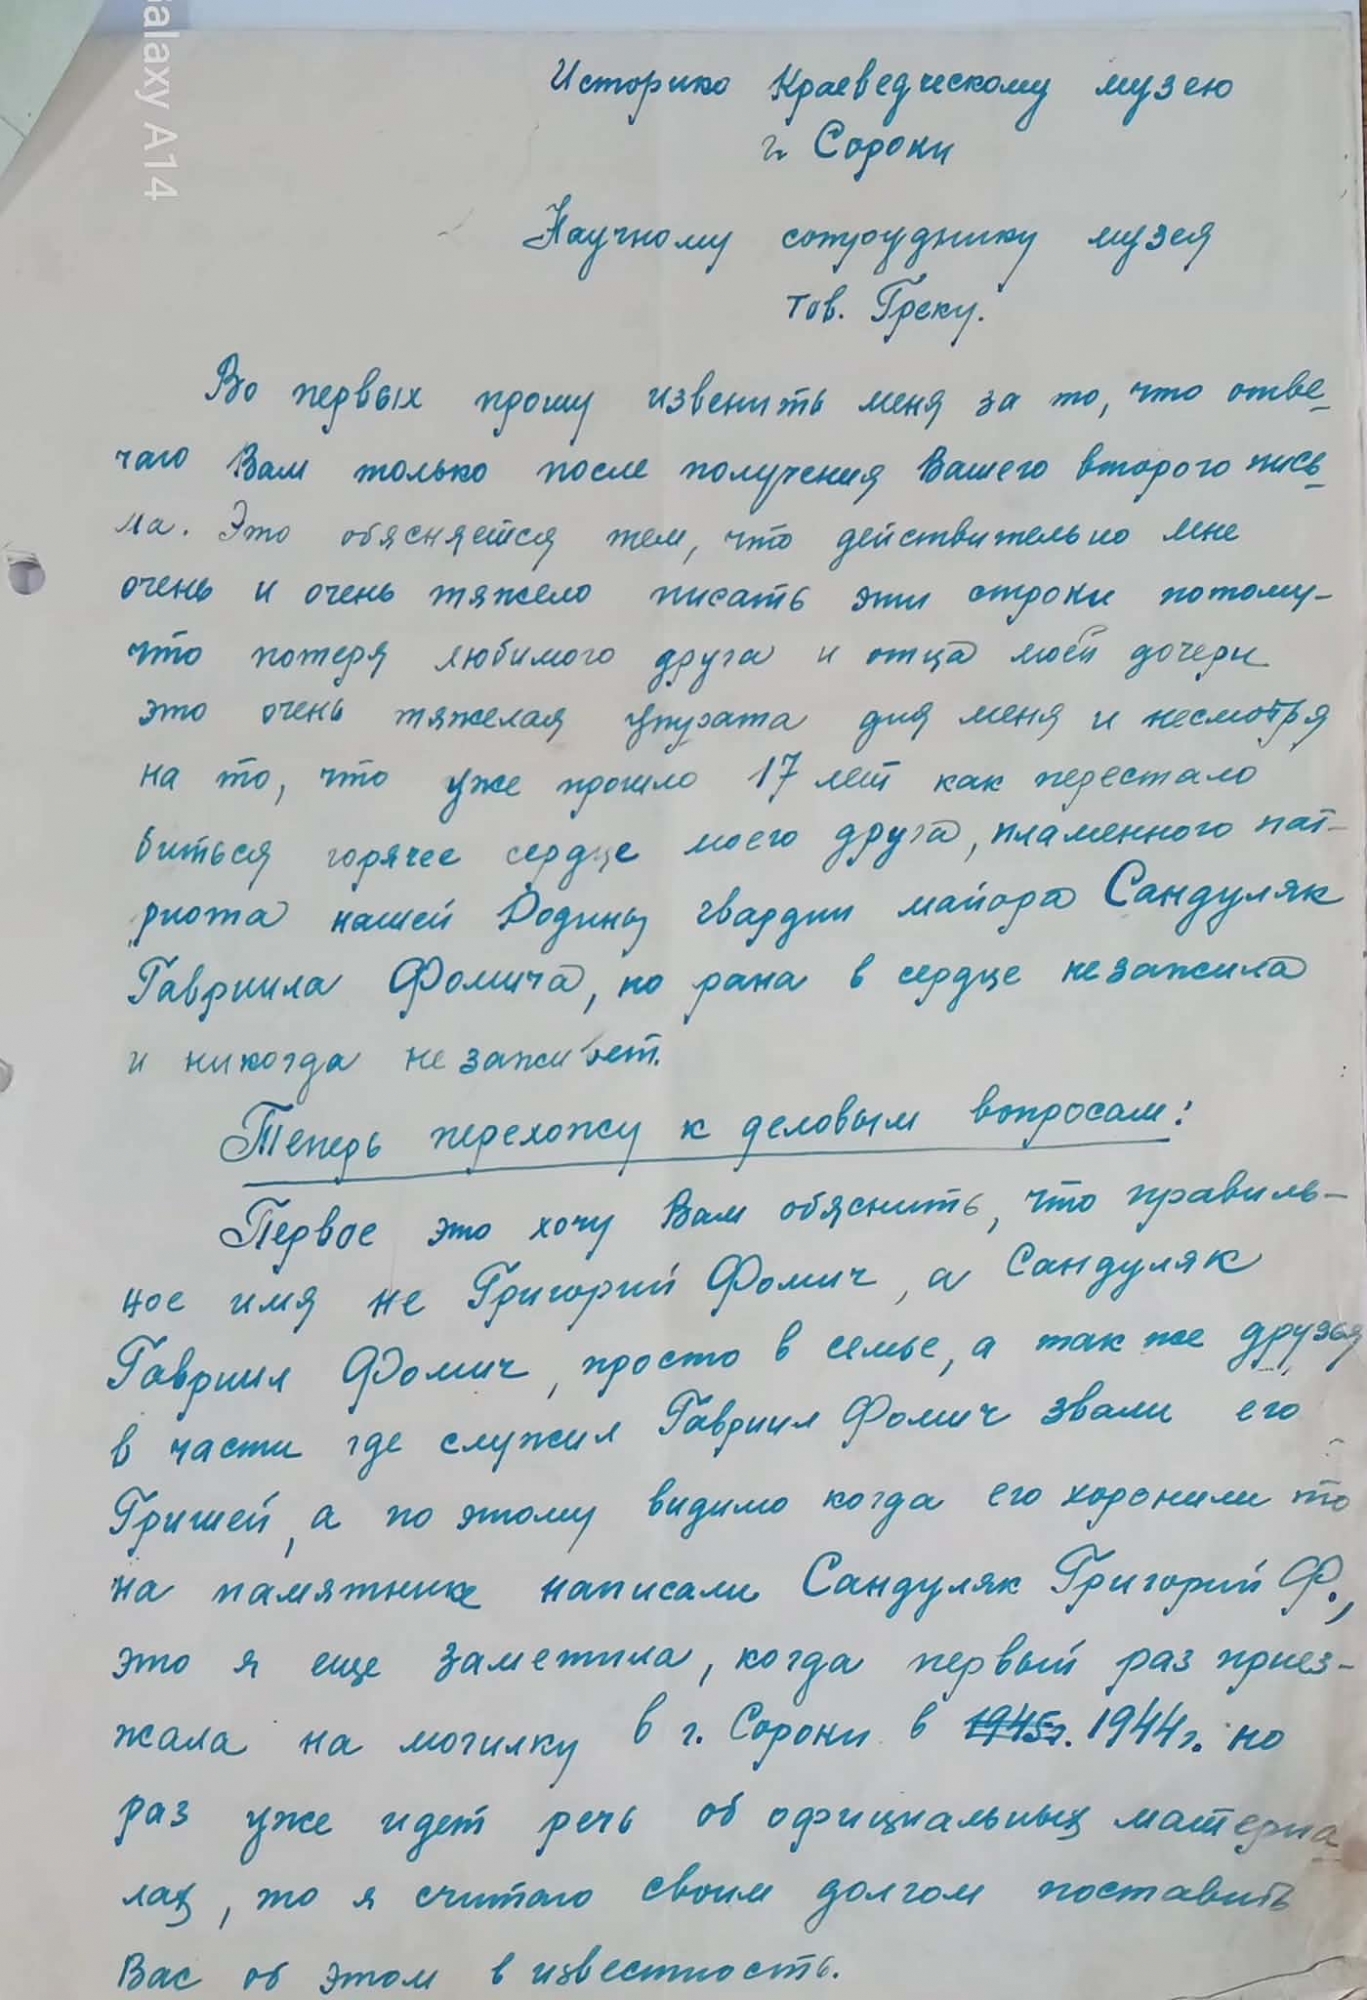 Galaxy A14
Историко Краеведческому музею
г. Сороки
Научному сотруднику музея
тов. Греку.
Во первых прошу извенить меня за то, что отве-
чаю Вам только после получения Вашего второго пись-
ма. Это обясняется тем, что действительно мне
очень и очень тяжело писать эти строки потому-
что потеря любимого друга и отца моей дочери
это очень тяжелая утрата для меня и несмотря
на то, что уже прошло 17 лет как перестало
биться горячее сердце моего друга, пламенного пат-
риота нашей Родины гвардии майора Сандуляк
Гавриила Фомича, но рана в сердце незажила
и никогда незаживет.
Теперь перехожу к деловым вопросам:
Первое это хочу Вам обяснить, что правиль-
ное имя не Григорий Фомич, а Сандуляк
Гавриил Фомич, просто в семье, а так же друзья
в части где служил Гавриил Фомич звали его
Гришей, а по этому видимо когда его хоронили то
на памятнике написали Сандуляк Григорий Ф.,
это я еще заметила, когда первый раз приез-
жала на могилку в г. Сороки в 1945г. 1944г. но
раз уже идет речь об официальных материа
лах, то я считаю своим долгом поставить
Вас об этом в известность.